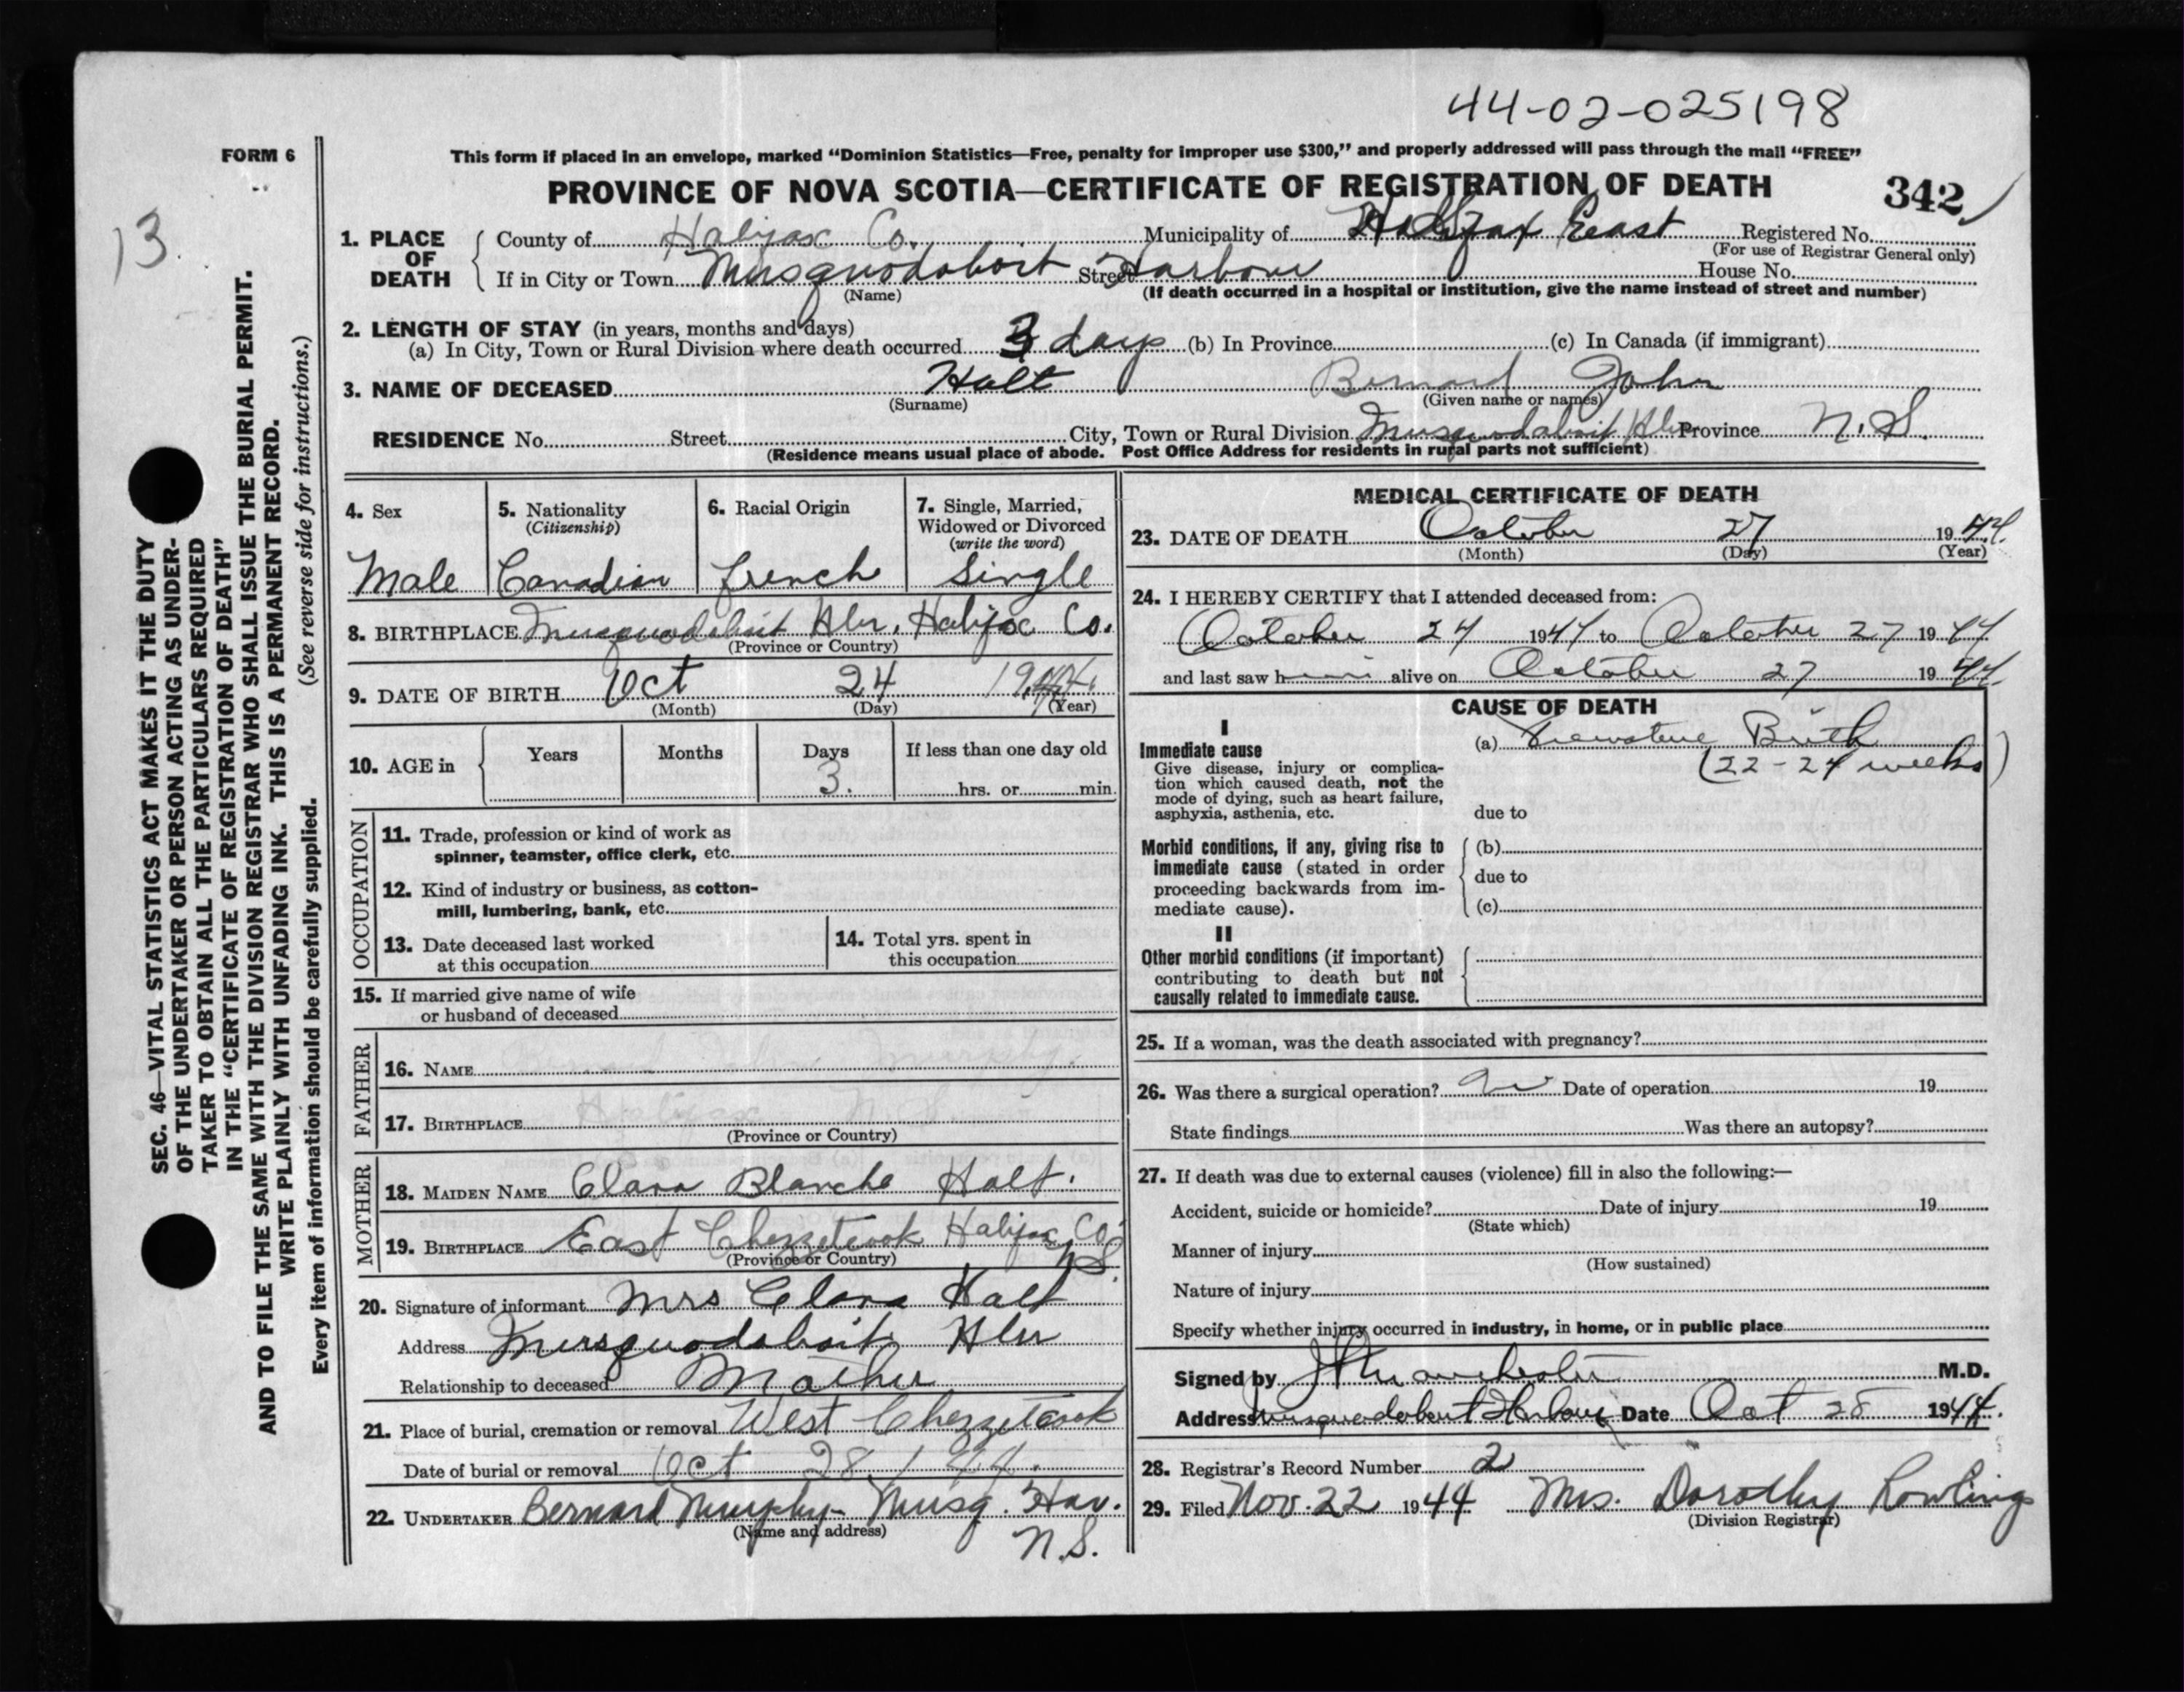 44-02-025198
FORM 6
This form if placed in an envelope, marked "Dominion Statistics—Free, penalty for improper use $300," and properly addressed will pass through the mail "FREE"
PROVINCE OF NOVA SCOTIA—CERTIFICATE OF REGISTRATION OF DEATH
342
13
SEC. 46—VITAL STATISTICS ACT MAKES IT THE DUTY
OF THE UNDERTAKER OR PERSON ACTING AS UNDER-
TAKER TO OBTAIN ALL THE PARTICULARS REQUIRED
IN THE "CERTIFICATE OF REGISTRATION OF DEATH"
AND TO FILE THE SAME WITH THE DIVISION REGISTRAR WHO SHALL ISSUE THE BURIAL PERMIT.
WRITE PLAINLY WITH UNFADING INK. THIS IS A PERMANENT RECORD.
Every item of information should be carefully supplied. (See reverse side for instructions.)
1. PLACE OF DEATH
County of Halifax Co. Municipality of Halifax East Registered No.
(For use of Registrar General only)
If in City or Town Musquodoboit Street Harbour House No.
(Name) (If death occurred in a hospital or institution, give the name instead of street and number)
2. LENGTH OF STAY (in years, months and days)
(a) In City, Town or Rural Division where death occurred 3 days (b) In Province (c) In Canada (if immigrant)
3. NAME OF DECEASED Halt Bernard John
(Surname) (Given name or names)
RESIDENCE No. Street City, Town or Rural Division Musquodoboit Hbr Province N.S.
(Residence means usual place of abode. Post Office Address for residents in rural parts not sufficient)
4. Sex
Male
5. Nationality
(Citizenship)
Canadian
6. Racial Origin
french
7. Single, Married,
Widowed or Divorced
(write the word)
Single
8. BIRTHPLACE Musquodoboit Hbr, Halifax Co.
(Province or Country)
9. DATE OF BIRTH Oct 24 1944
(Month) (Day) (Year)
10. AGE in Years Months Days If less than one day old
3. hrs. or min.
OCCUPATION
11. Trade, profession or kind of work as
spinner, teamster, office clerk, etc.
12. Kind of industry or business, as cotton-
mill, lumbering, bank, etc.
13. Date deceased last worked
at this occupation
14. Total yrs. spent in
this occupation
15. If married give name of wife
or husband of deceased
FATHER
16. NAME Bernard John Murphy.
17. BIRTHPLACE Halifax N.S.
(Province or Country)
MOTHER
18. MAIDEN NAME Clara Blanche Halt.
19. BIRTHPLACE East Chezzetcook Halifax Co.
N.S.
(Province or Country)
20. Signature of informant Mrs Clara Halt
Address Musquodoboit Hbr
Relationship to deceased Mother
21. Place of burial, cremation or removal West Chezzetcook
Date of burial or removal Oct 28, 1944.
22. UNDERTAKER Bernard Murphy - Musq. Har.
(Name and address) N.S.
MEDICAL CERTIFICATE OF DEATH
23. DATE OF DEATH October 27 1944
(Month) (Day) (Year)
24. I HEREBY CERTIFY that I attended deceased from:
October 24 1944 to October 27 1944
and last saw him alive on October 27 1944
CAUSE OF DEATH
I
Immediate cause
Give disease, injury or complica-
tion which caused death, not the
mode of dying, such as heart failure,
asphyxia, asthenia, etc.
(a) Premature Birth
(22-24 weeks)
due to
Morbid conditions, if any, giving rise to
immediate cause (stated in order
proceeding backwards from im-
mediate cause).
(b)
due to
(c)
II
Other morbid conditions (if important)
contributing to death but not
causally related to immediate cause.
25. If a woman, was the death associated with pregnancy?
26. Was there a surgical operation? No Date of operation 19
State findings Was there an autopsy?
27. If death was due to external causes (violence) fill in also the following:—
Accident, suicide or homicide? Date of injury 19
(State which)
Manner of injury
(How sustained)
Nature of injury
Specify whether injury occurred in industry, in home, or in public place
Signed by M.D.
Address Musquodoboit Harbour Date Oct 28 1944.
28. Registrar's Record Number 2
29. Filed Nov. 22 1944 Mrs. Dorothy Rowlings
(Division Registrar)